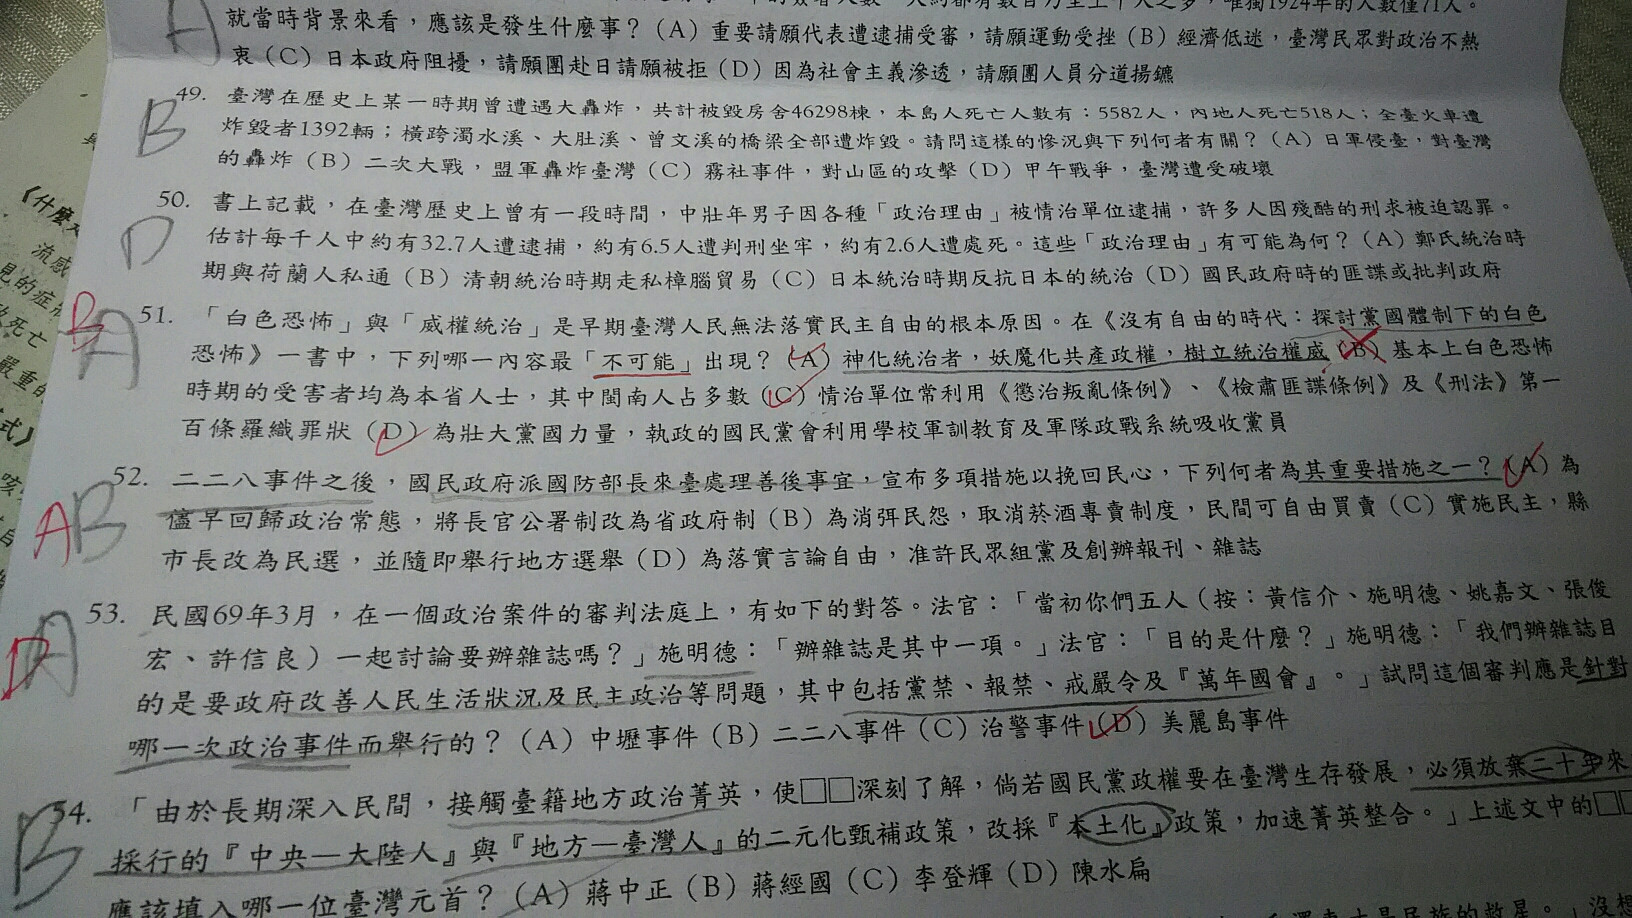 就當時背景來看，應該是發生什麼事？（A）重要請願代表遭逮捕受審，請願運動受挫（B）經濟低迷，臺灣民眾對政治不熱
衷（C）日本政府阻撓，請願團赴日請願被拒（D）因為社會主義滲透，請願團人員分道揚鑣
A
49. 臺灣在歷史上某一時期曾遭遇大轟炸，共計被毀房舍46298棟，本島人死亡人數有：5582人，內地人死亡518人；全臺火車遭
炸毀者1392輛；橫跨濁水溪、大肚溪、曾文溪的橋梁全部遭炸毀。請問這樣的慘況與下列何者有關？（A）日軍侵臺，對臺灣
的轟炸（B）二次大戰，盟軍轟炸臺灣（C）霧社事件，對山區的攻擊（D）甲午戰爭，臺灣遭受破壞
B
50. 書上記載，在臺灣歷史上曾有一段時間，中壯年男子因各種「政治理由」被情治單位逮捕，許多人因殘酷的刑求被迫認罪。
估計每千人中約有32.7人遭逮捕，約有6.5人遭判刑坐牢，約有2.6人遭處死。這些「政治理由」有可能為何？（A）鄭氏統治時
期與荷蘭人私通（B）清朝統治時期走私樟腦貿易（C）日本統治時期反抗日本的統治（D）國民政府時的匪諜或批判政府
D
51. 「白色恐怖」與「威權統治」是早期臺灣人民無法落實民主自由的根本原因。在《沒有自由的時代：探討黨國體制下的白色
恐怖》一書中，下列哪一內容最「不可能」出現？（A）神化統治者，妖魔化共產政權，樹立統治權威（B）基本上白色恐怖
時期的受害者均為本省人士，其中閩南人占多數（C）情治單位常利用《懲治叛亂條例》、《檢肅匪諜條例》及《刑法》第一
百條羅織罪狀（D）為壯大黨國力量，執政的國民黨會利用學校軍訓教育及軍隊政戰系統吸收黨員
B A
52. 二二八事件之後，國民政府派國防部長來臺處理善後事宜，宣布多項措施以挽回民心，下列何者為其重要措施之一？（A）為
儘早回歸政治常態，將長官公署制改為省政府制（B）為消弭民怨，取消菸酒專賣制度，民間可自由買賣（C）實施民主，縣
市長改為民選，並隨即舉行地方選舉（D）為落實言論自由，准許民眾組黨及創辦報刊、雜誌
A B
53. 民國69年3月，在一個政治案件的審判法庭上，有如下的對答。法官：「當初你們五人（按：黃信介、施明德、姚嘉文、張俊
宏、許信良）一起討論要辦雜誌嗎？」施明德：「辦雜誌是其中一項。」法官：「目的是什麼？」施明德：「我們辦雜誌目
的是要政府改善人民生活狀況及民主政治等問題，其中包括黨禁、報禁、戒嚴令及『萬年國會』。」試問這個審判應是針對
哪一次政治事件而舉行的？（A）中壢事件（B）二二八事件（C）治警事件（D）美麗島事件
D A
54. 「由於長期深入民間，接觸臺籍地方政治菁英，使□□深刻了解，倘若國民黨政權要在臺灣生存發展，必須放棄二十年來
採行的『中央—大陸人』與『地方—臺灣人』的二元化甄補政策，改採『本土化』政策，加速菁英整合。」上述文中的□□
應該填入哪一位臺灣元首？（A）蔣中正（B）蔣經國（C）李登輝（D）陳水扁
B